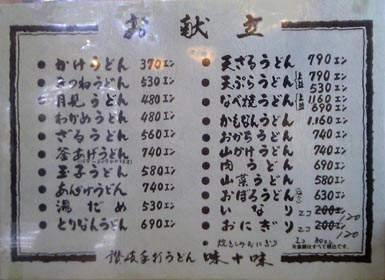 お献立
かけうどん 370エン
きつねうどん 530エン
月見うどん 480エン
わかめうどん 480エン
ざるうどん 560エン
釜あげうどん 740エン
玉子うどん 580エン
あんかけうどん 740エン
湯だめ 530エン
とりなんうどん 690エン
天ざるうどん 790エン
天ぷらうどん 上 790エン
並 530エン
なべ焼うどん 上 1,160エン
並 690エン
かもなんうどん 1,160エン
おかちうどん 740エン
山かけうどん 740エン
肉うどん 690エン
山菜うどん 580エン
おぼろうどん 630エン
いなり 2コ 200エン 120
おにぎり 2コ 200エン 120
讃岐手打うどん 味十味